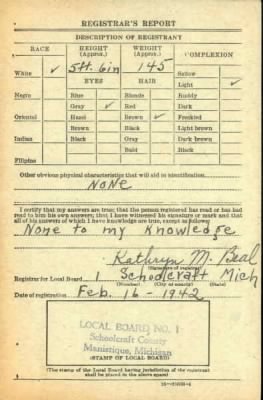 REGISTRAR'S REPORT
DESCRIPTION OF REGISTRANT
RACE HEIGHT (Approx.) WEIGHT (Approx.) COMPLEXION
White ✓ 5ft. 6in 145 Sallow
EYES HAIR Light ✓
Negro Blue Blonde Ruddy
Gray ✓ Red Dark
Oriental Hazel Brown ✓ Freckled
Brown Black Light brown
Indian Black Gray Dark brown
Bald Black
Filipino
Other obvious physical characteristics that will aid in identification
NONE
I certify that my answers are true; that the person registered has read or has had
read to him his own answers; that I have witnessed his signature or mark and that
all of his answers of which I have knowledge are true, except as follows:
None to my Knowledge
Kathryn M. Beal
(Signature of registrar)
Registrar for Local Board 1 Schoolcraft Mich
(Number) (City or county) (State)
Date of registration Feb. 16-1942
LOCAL BOARD NO. 1
Schoolcraft County
Manistique, Michigan
(STAMP OF LOCAL BOARD)
(The stamp of the Local Board having jurisdiction of the registrant
shall be placed in the above space)